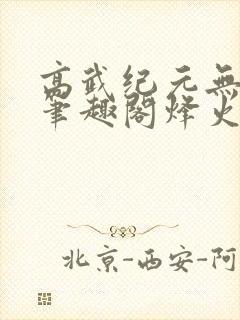 高武纪元無
筆趣阁烽火
北京-西安-阿